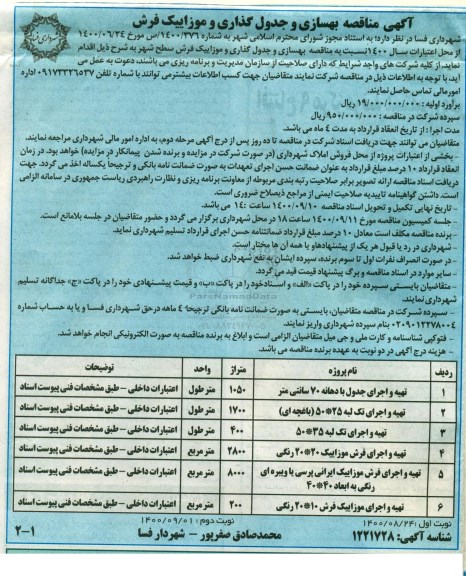 آگهی مناقصه بهسازی و جدول گذاری و موزاییک فرش
شهرداری فسا در نظر دارد؛ به استناد مجوز شورای محترم اسلامی شهر به شماره ۱۴۰۰/۳۷۶/ص مورخ ۱۴۰۰/۰۶/۲۴
از محل اعتبارات سال ۱۴۰۰نسبت به مناقصه بهسازی و جدول گذاری و موزاییک فرش سطح شهر به شرح ذیل اقدام
نماید. از کلیه شرکت های واجد شرایط که دارای صلاحیت از سازمان مدیریت و برنامه ریزی می باشند، دعوت به عمل می
آید، با توجه به اطلاعات ذیل در مناقصه شرکت نمایند متقاضیان جهت کسب اطلاعات بیشترمی توانند با شماره تلفن ۰۹۱۷۳۳۳۶۵۳۷ اداره
امورمالی تماس حاصل نمایند.
برآورد اولیه: ۱۹/۰۰۰/۰۰۰/۰۰۰ ریال
سپرده شرکت در مناقصه : ۹۵۰/۰۰۰/۰۰۰ریال
مدت اجرا : از تاریخ انعقاد قرارداد به مدت ۴ ماه می باشد.
متقاضیان می توانند جهت دریافت اسناد شرکت در مناقصه تا ده روز پس از درج آگهی مرحله دوم، به اداره امور مالی شهرداری مراجعه نمایند.
- بخشی از اعتبارات پروژه از محل فروش املاک شهرداری (در صورت شرکت در مزایده و برنده شدن پیمانکار در مزایده) خواهد بود. در زمان
انعقاد قرارداد ۱۰ درصد مبلغ قرارداد به عنوان ضمانت حسن اجرای تعهدات به صورت ضمانت نامه بانکی و ترجیحاً یکساله اخذ می گردد. جهت
دریافت اسناد مناقصه ارائه تصویر برابر صلاحیت رتبه بندی مربوطه از معاونت برنامه ریزی و نظارت راهبردی ریاست جمهوری در سامانه الزامی
است. داشتن گواهینامه تاییدیه صلاحیت ایمنی از مراجع ذیصلاح ضروری است.
- تاریخ نهایی تکمیل و تحویل اسناد مناقصه ۱۴۰۰/۰۹/۱۰ ساعت ۱۴: می باشد.
- جلسه کمیسیون مناقصه مورخ ۱۴۰۰/۰۹/۱۱ ساعت ۱۸ در محل شهرداری برگزار می گردد و حضور متقاضیان در جلسه بلامانع است.
- برنده مناقصه مکلف است معادل ۱۰ درصد مبلغ قرارداد ضمانتنامه حسن اجرای قرارداد تسلیم شهرداری نماید.
- شهرداری در رد یا قبول هر یک از پیشنهادهاو یا همه آن ها مختار است.
- در صورت انصراف نفرات اول تا سوم برنده، سپرده ایشان به نفع شهرداری ضبط خواهد شد.
- سایر موارد در اسناد مناقصه و برگ پیشنهاد قیمت قید می گردد.
- متقاضیان بایستی سپرده خود را در پاکت «الف» و اسنادخود را در پاکت «ب» و قیمت پیشنهادی خود را در پاکت «ج» جداگانه تسلیم
شهرداری نمایند.
- سپرده شرکت در مناقصه متقاضیان، بایستی به صورت ضمانت نامه بانکی ترجیحا" ۴ ماهه درحق شهرداری فسا و یا به حساب شماره
۰۲۰۹۰۱۲۲۷۸۰۰۴ بنام سپرده شهرداری واریز نمایند.
- فتوکپی شناسنامه و کارت ملی و جی میل متقاضیان الزامی است و ابلاغ به برنده مناقصه به صورت الکترونیکی انجام خواهد شد.
- هزینه درج آگهی در دو نوبت به عهده برنده مناقصه می باشد.
ردیف نام پروژه متراژ واحد توضیحات
۱ تهیه و اجرای جدول با دهانه ۷۰ سانتی متر ۱۰۵۰ متر طول اعتبارات داخلی – طبق مشخصات فنی پیوست اسناد
۲ تهیه و اجرای تک لبه ۲۵*۵۰ (باغچه ای) ۱۷۰۰ متر طول اعتبارات داخلی – طبق مشخصات فنی پیوست اسناد
۳ تهیه و اجرای تک لبه ۳۵*۵۰ ۴۰۰ متر طول اعتبارات داخلی – طبق مشخصات فنی پیوست اسناد
۴ تهیه و اجرای فرش موزاییک ۲۰*۲۰ رنگی ۲۸۰۰ متر مربع اعتبارات داخلی – طبق مشخصات فنی پیوست اسناد
۵ تهیه و اجرای فرش موزاییک ایرانی پرسی یا ویبره ای رنگی به ابعاد ۴۰*۴۰ ۸۰۰۰ متر مربع اعتبارات داخلی – طبق مشخصات فنی پیوست اسناد
۶ تهیه و اجرای موزاییک فرش ۱۰*۲۰ رنگی ۲۰۰ متر مربع اعتبارات داخلی – طبق مشخصات فنی پیوست اسناد
نوبت اول: ۱۴۰۰/۰۸/۲۴ نوبت دوم: ۱۴۰۰/۰۹/۰۱
شناسه آگهی: ۱۲۲۱۷۲۸ محمدصادق صفرپور - شهردار فسا ۲-۱